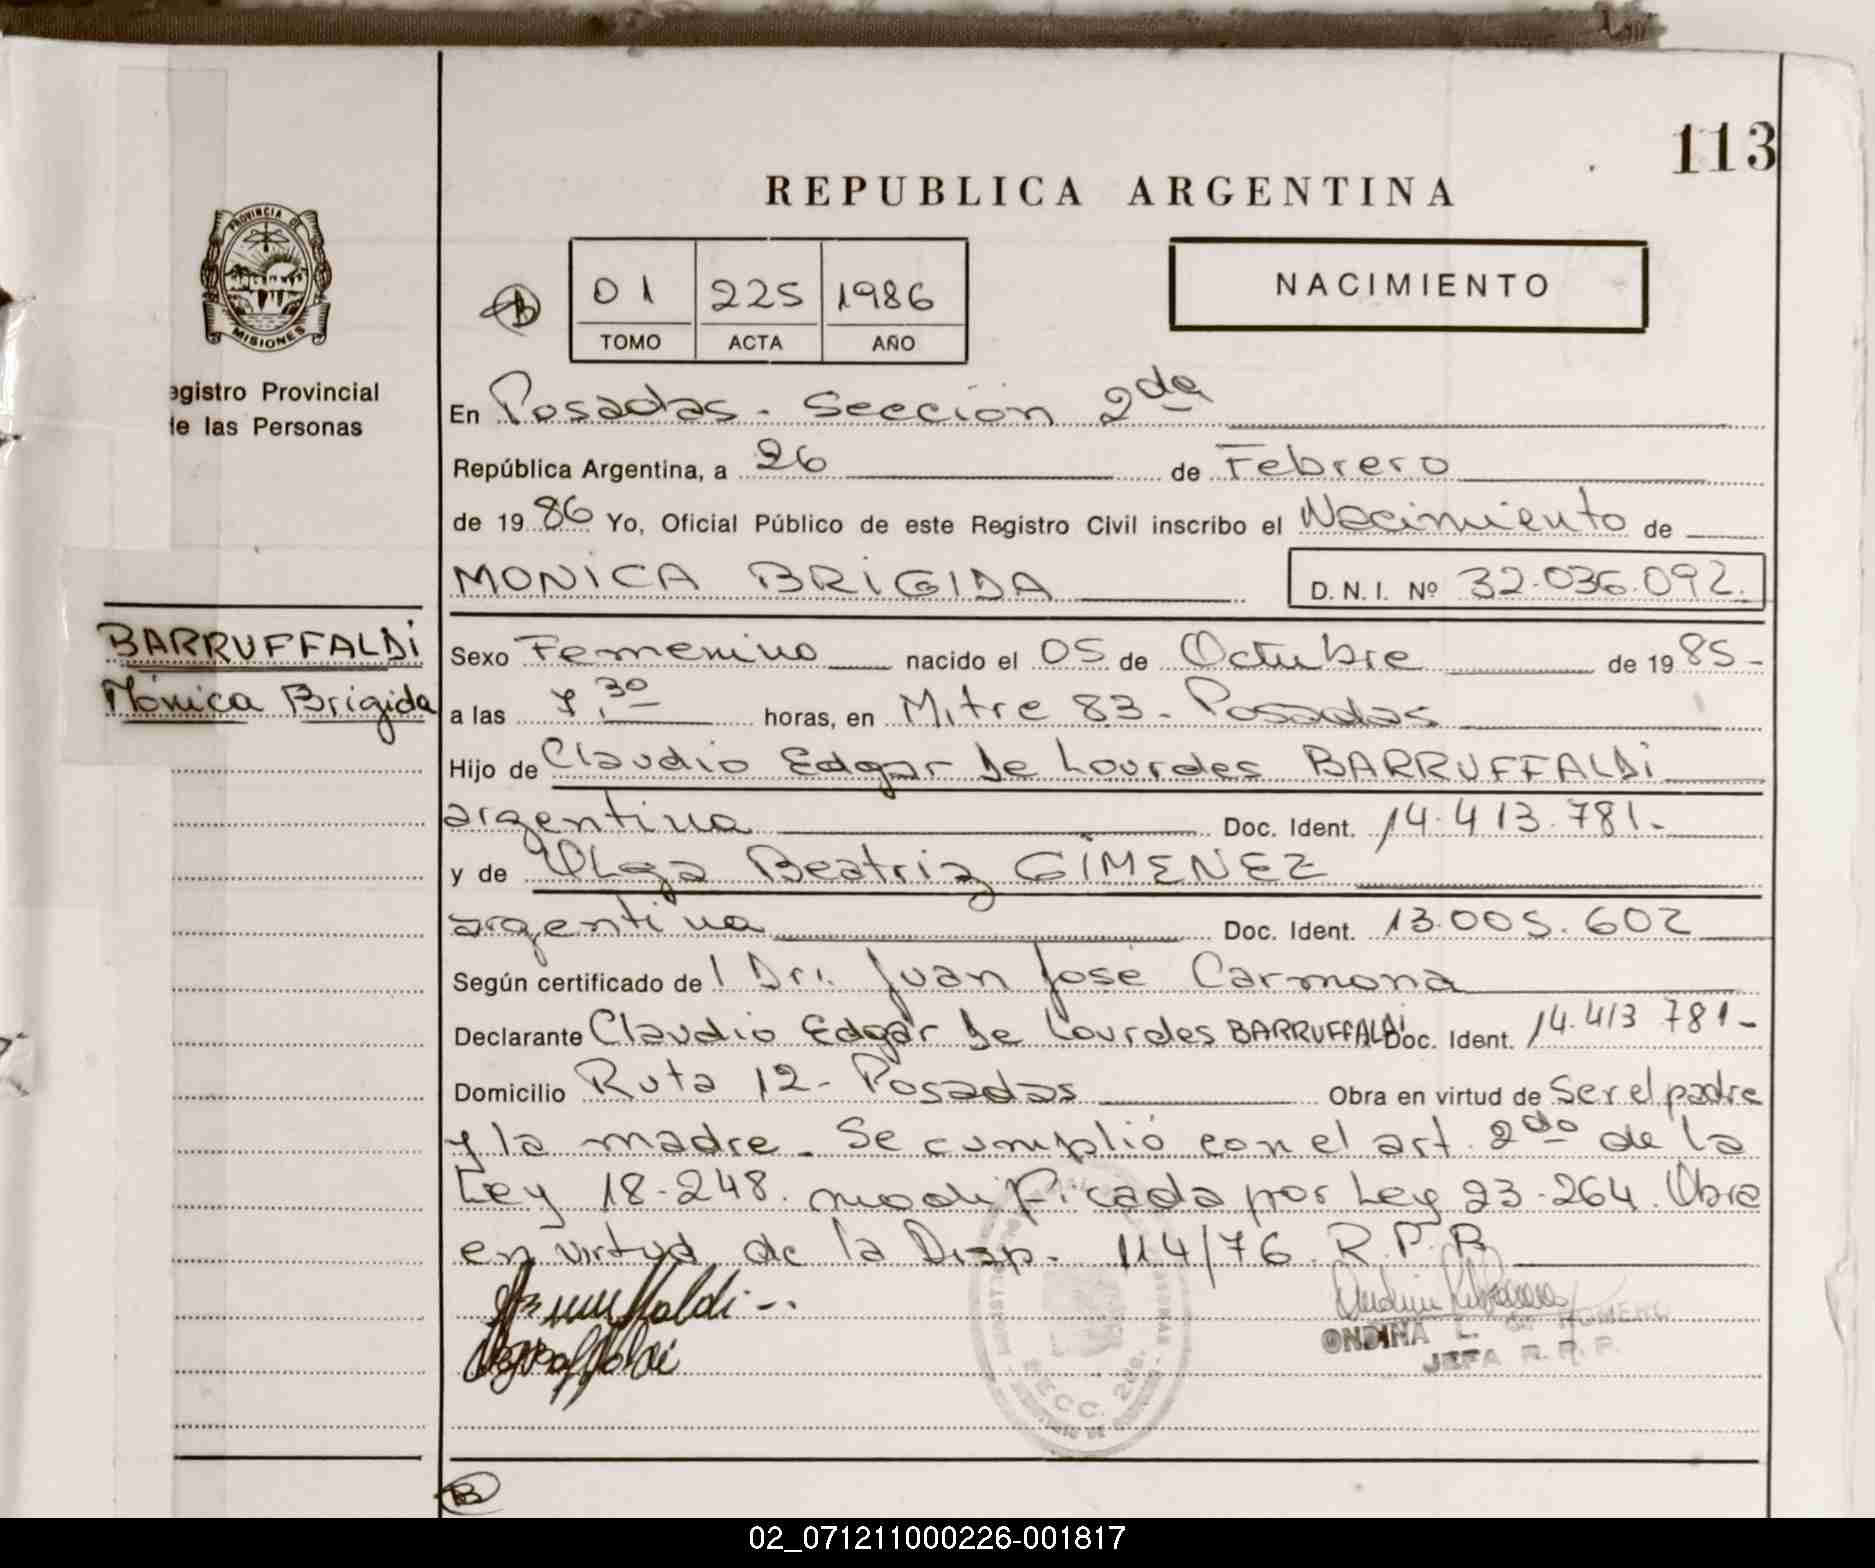 113
REPUBLICA ARGENTINA
PROVINCIA DE
MISIONES
01 225 1986
TOMO ACTA AÑO
NACIMIENTO
egistro Provincial
de las Personas
En Posadas - Sección 2da
República Argentina, a 26 de Febrero
de 1986 Yo, Oficial Público de este Registro Civil inscribo el Nacimiento de
MONICA BRIGIDA D. N. I. Nº 32.036.092.
BARRUFFALDI
Mónica Brigida
Sexo Femenino nacido el 05 de Octubre de 1985-
a las 7.30 horas, en Mitre 83 - Posadas
Hijo de Claudio Edgar De Lourdes BARRUFFALDI
argentina Doc. Ident. 14.413.781-
y de Olga Beatriz GIMENEZ
argentina Doc. Ident. 13.005.602
Según certificado del Dr. Juan José Carmona
Declarante Claudio Edgar De Lourdes BARRUFFALDI Doc. Ident. 14.413 781-
Domicilio Ruta 12 - Posadas Obra en virtud de Ser el padre
y la madre. Se cumplió con el art. 2do de la
Ley 18-248. modificada por Ley 23-264. Obra
en virtud de la Disp. 114/76 R.P.P.
ONDINA L. de ROMERO
JEFA R. P. P.
SECC. 2da.
02_071211000226-001817